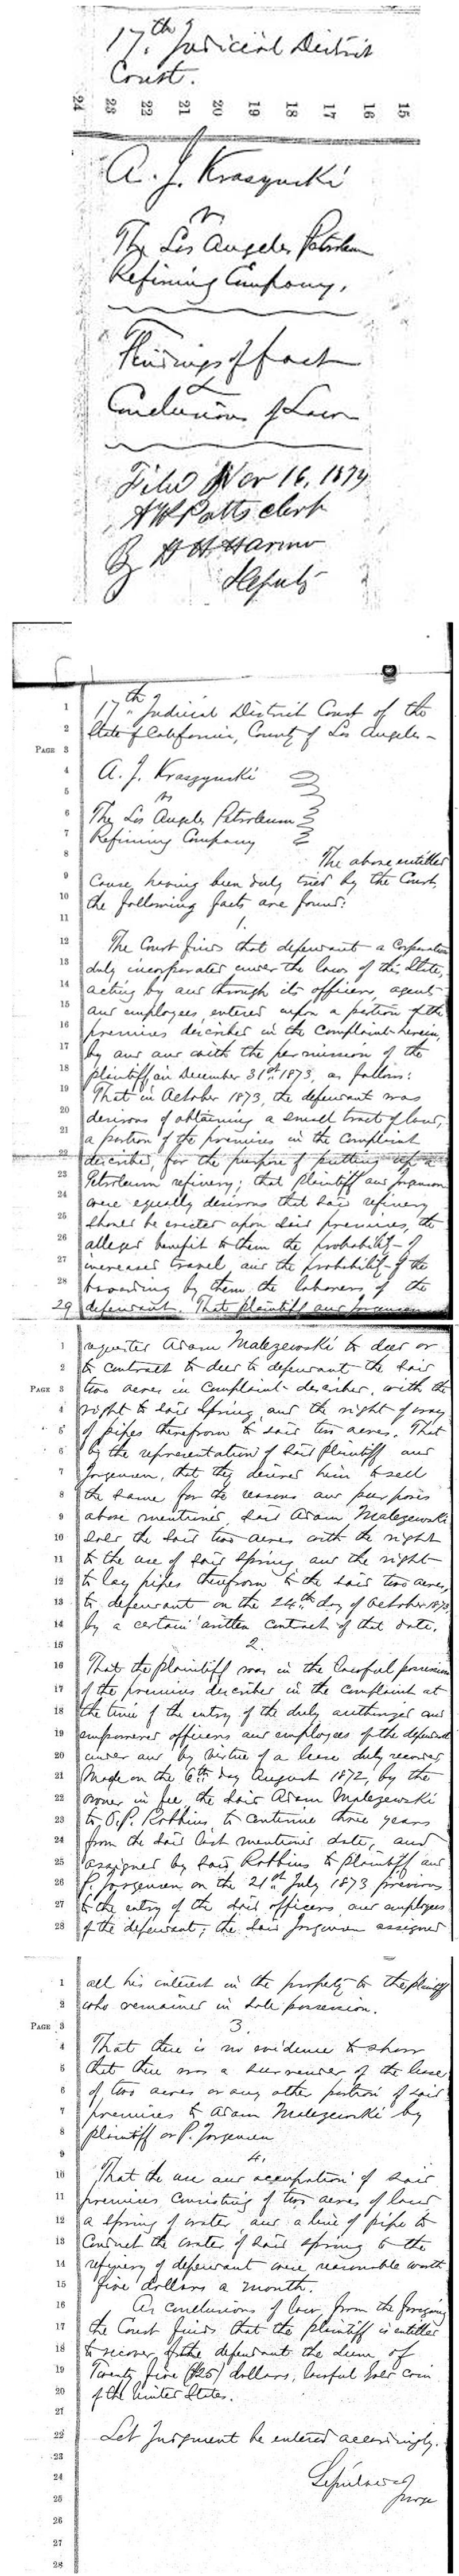 17.th Judicial District
Court.
24 23 22 21 20 19 18 17 16 15
A. J. Kraszynski
vs
The Los Angeles Petroleum
Refining Company.
Findings of fact
&
Conclusions of Law
Filed Nov 16, 1874
A W Potts clerk
By
Deputy
1 17th Judicial District Court of the
2 State of California, County of Los Angeles -
PAGE 3
4 A. J. Kraszynski
5 vs
6 The Los Angeles Petroleum
7 Refining Company
8 The above entitled
9 Cause, having been duly tried by the Court,
10 the following facts are found:
11 1.
12 The Court finds that defendant a Corporation
13 duly incorporated under the laws of this State,
14 acting by and through its officers, agents
15 and employees, entered upon a portion of the
16 premises described in the Complaint herein,
17 by and with the permission of the
18 plaintiff, on December 31st 1873, as follows:
19 That in October 1873, the defendant was
20 desirous of obtaining a small tract of land,
21 a portion of the premises in the Complaint
22 described, for the purpose of putting up a
23 Petroleum refinery; that plaintiff and Jorgensen
24 were equally desirous that said refinery
25 should be erected upon said premises, the
26 alleged benefit to them the probability of
27 increased travel, and the probability of the
28 boarding by them, the laborers of the
29 defendant. That plaintiff and Jorgensen
1 requested Adam Malezewski to deed or
2 to contract to deed to defendant the said
PAGE 3 two acres in complaint described, with the
4 right to said Spring, and the right of way
5 of pipes therefrom to said two acres. That
6 by the representation of said plaintiff and
7 Jorgensen, that they desired him to sell
8 the same for the reasons and purposes
9 above mentioned, said Adam Malezewski
10 sold the said two acres with the right
11 to the use of said Spring and the right
12 to lay pipes therefrom to the said two acres,
13 to defendant on the 24th day of October 1873,
14 by a certain written contract of that date.
15 2.
16 That the plaintiff was in the lawful possession
17 of the premises described in the complaint at
18 the time of the entry of the duly authorized and
19 empowered officers and employees of the defendant
20 under and by virtue of a lease duly recorded
21 made on the 6th day August 1872, by the
22 owner in fee, the said Adam Malezewski
23 to O.P. Robbins, to continue three years
24 from the said last mentioned date, and
25 assigned by said Robbins to plaintiff and
26 P. Jorgensen on the 21st July 1873 previous
27 to the entry of the said officers and employees
28 of the defendant; the said Jorgensen assigned
1 all his interest in the property to the plaintiff
2 who remained in sole possession.
PAGE 3 3.
4 That there is no evidence to show
5 that there was a surrender of the lease
6 of two acres or any other portion of said
7 premises to Adam Malezewski by
8 plaintiff or P. Jorgensen
9 4.
10 That the use and occupation of said
11 premises consisting of two acres of land
12 a spring of water and a line of pipe to
13 conduct the water of said spring to the
14 refinery of defendant were reasonable worth
15 five dollars a month.
16 As conclusions of law, from the foregoing
17 the Court finds that the plaintiff is entitled
18 to recover, of the defendant the sum of
19 Twenty five ($25) dollars, lawful gold coin
20 of the United States.
21
22 Let Judgment be entered accordingly.
23
24 Sepulveda
25 Judge
26
27
28